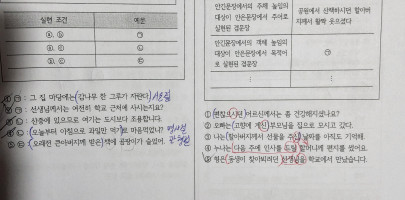 실현 조건
예문
ⓐ, ⓑ
㉠
ⓐ, ⓒ
㉡
ⓑ, ⓒ
㉢
① ㉠ : 그 집 마당에는 (감나무 한 그루가 자란다) 서술절
② ㉠ : 선생님께서는 여전히 학교 근처에 사시는지요?
③ ㉡ : 산중에 있으므로 여기는 도시보다 조용합니다.
④ ㉡ : (오늘부터 아침으로 과일만 먹기)로 마음먹었니? 명사절
⑤ ㉢ : (오래전 큰아버지께 받은) 책에 곰팡이가 슬었어. 관형절
안긴문장에서의 주체 높임의
대상이 안은문장에서 주어로
실현된 겹문장
공원에서 산책하시던 할아버
지께서 활짝 웃으셨다
안긴문장에서의 객체 높임의
대상이 안은문장에서 목적어
로 실현된 겹문장
㉠
① 편찮으시던 어르신께서는 좀 건강해지셨나요?
② 오빠는 고향에 계신 부모님을 집으로 모시고 갔다.
③ 나는 할아버지께서 선물을 주신 날짜를 아직도 기억해.
④ 누나는 다음 주에 인사를 드릴 할머니께 편지를 썼어.
⑤ 형은 동생이 찾아뵈려던 선생님을 학교에서 만났습니다.